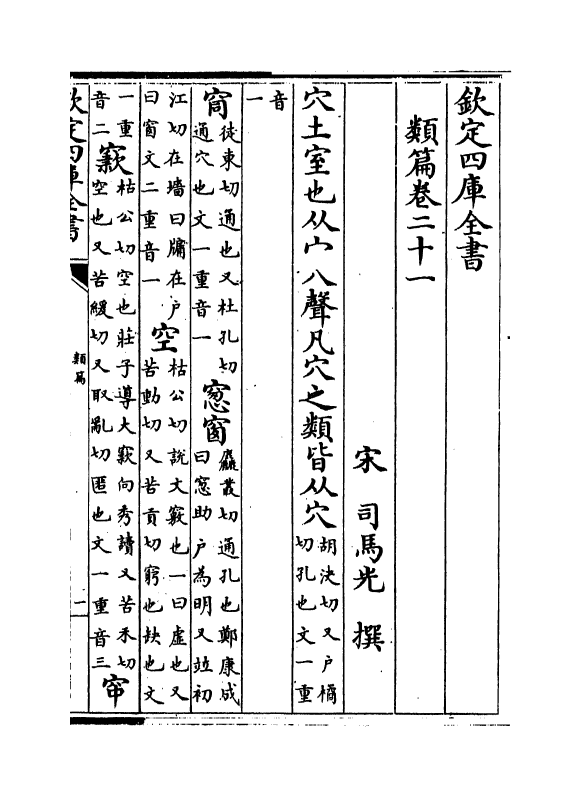 欽定四庫全書
類篇卷二十一
宋 司馬光 撰
穴土室也从宀八聲凡穴之類皆从穴胡決切又戶橘
切孔也文一重
音
一
䆚徒東切通也又杜孔切
通穴也文一重音一
窻窗麤叢切通孔也鄭康成
曰窻助戶為明又竝初
江切在墻曰牖在戶
曰窗文二重音一
空枯公切說文竅也一曰虛也又
苦動切又苦貢切窮也缺也文
一重
音二
窾枯公切空也莊子導大窾向秀讀又苦禾切
空也又苦緩切又取亂切匿也文一重音三
帘
欽定四庫全書
類篇
一